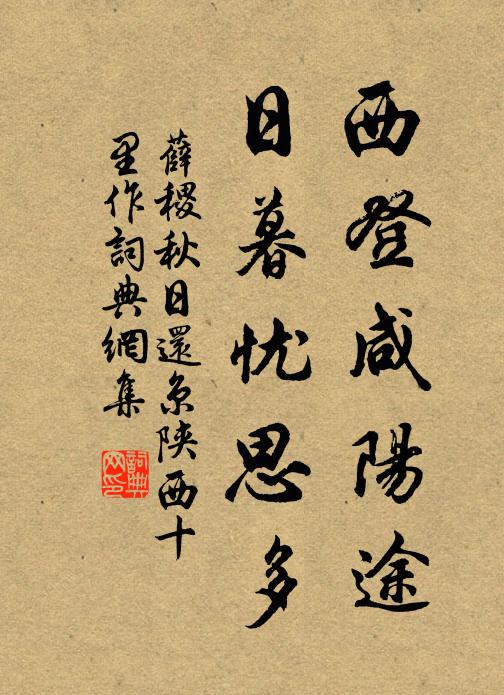 西登咸陽途
日暮忧思多
薛稷秋日還京陝西十
里作詞典網集
詞典
网印